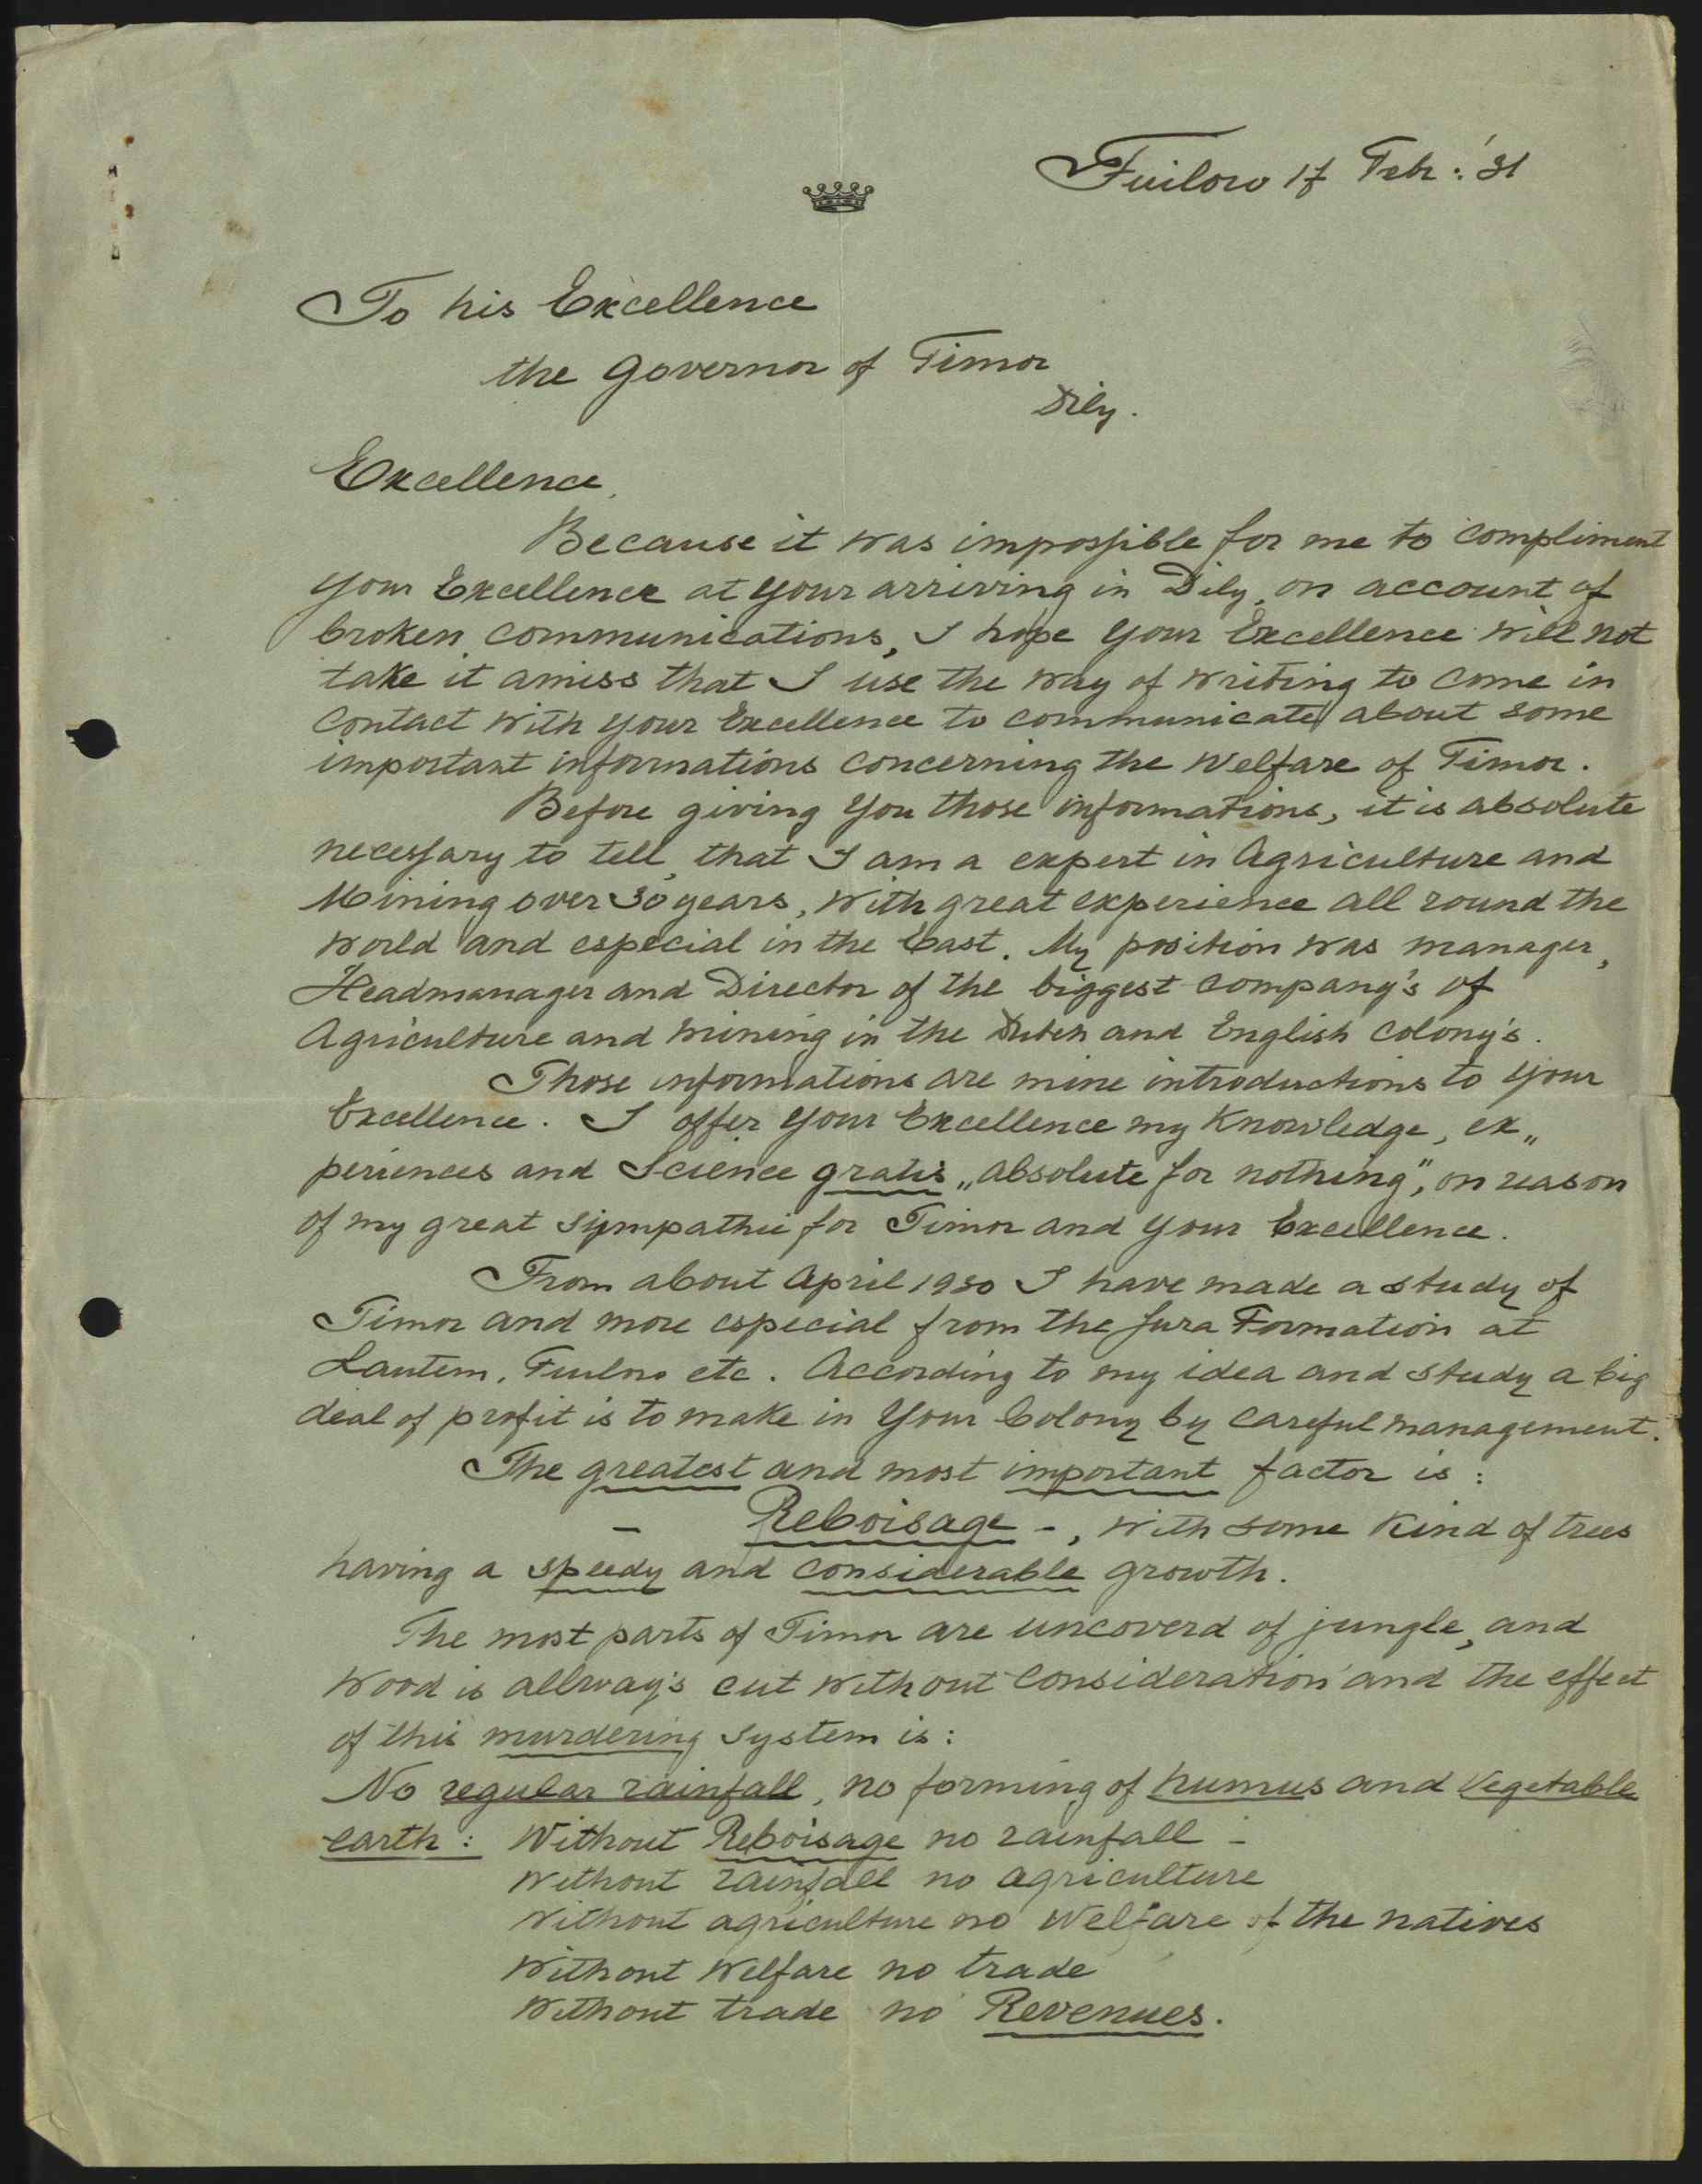 Fuiloro 17 Febr: '31
To his Excellence
the Governor of Timor
Dily.
Excellence,
Because it was impossible for me to compliment
your Excellence at your arriving in Dily, on account of
broken communications, I hope your Excellence will not
take it amiss that I use the way of writing to come in
contact with your Excellence to communicate about some
important informations concerning the welfare of Timor.
Before giving you those informations, it is absolute
necessary to tell, that I am a expert in Agriculture and
Mining over 30 years, with great experience all round the
world and especial in the East. My position was manager,
Headmanager and Director of the biggest company's of
Agriculture and mining in the Dutch and English colony's.
Those informations are mine introductions to your
Excellence. I offer your Excellence my Knowledge, ex„
periences and Science gratis „absolute for nothing", on reason
of my great sympathie for Timor and your Excellence.
From about April 1930 I have made a study of
Timor and more especial from the Jura Formation at
Lautem, Fuiloro etc. According to my idea and study a big
deal of profit is to make in your Colony by careful management.
The greatest and most important factor is:
- Reboisage -, with some Kind of trees
having a speedy and considerable growth.
The most parts of Timor are uncoverd of jungle, and
wood is allway's cut without consideration and the effect
of this murdering system is:
No regular rainfall, no forming of humus and vegetable
earth: Without Reboisage no rainfall -
Without rainfall no agriculture
Without agriculture no welfare of the natives
Without welfare no trade
Without trade no Revenues.